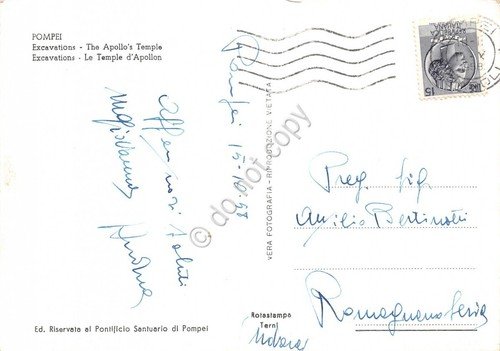 POMPEI
Excavations - The Apollo's Temple
Excavations - Le Temple d'Apollon
Pompei 15.10.58
Affettuosi saluti
Giovanna
VERA FOTOGRAFIA - RIPRODUZIONE VIETATA
© do not copy
Preg. Sig.
Bertinotti
Romagnano Sesia
Rotastampa
Terni
Novara
Ed. Riservata al Pontificio Santuario di Pompei
LIRE 15